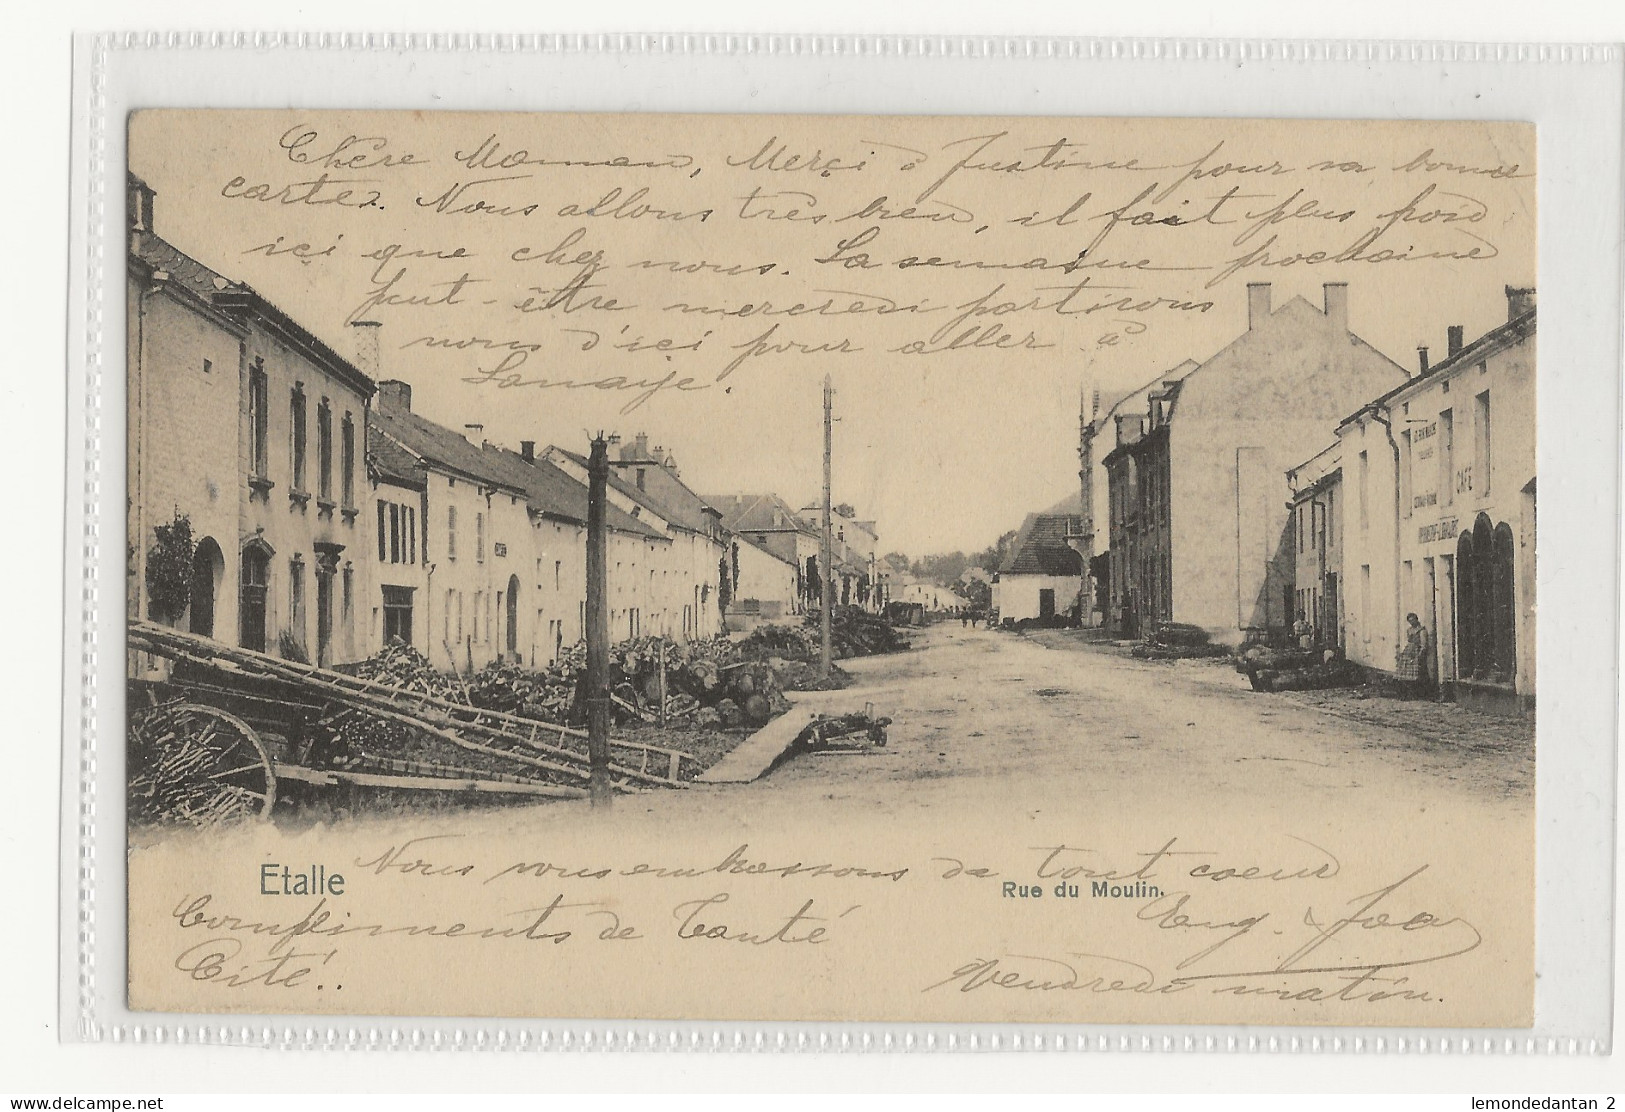 Chère Maman, Merçi à Justine pour sa bonne
cartes. Nous allons très bien, il fait plus froid
ici que chez nous. La semaine prochaine
peut-être mercredi partirons
nous d'ici pour aller à
Lanaye.
CAFÉ
Nous vous embrassons de tout coeur
Etalle
Rue du Moulin.
Compliments de Tanté
Eug. &
Cité!..
Vendredi matin.
lemondedantan 2
www.delcampe.net